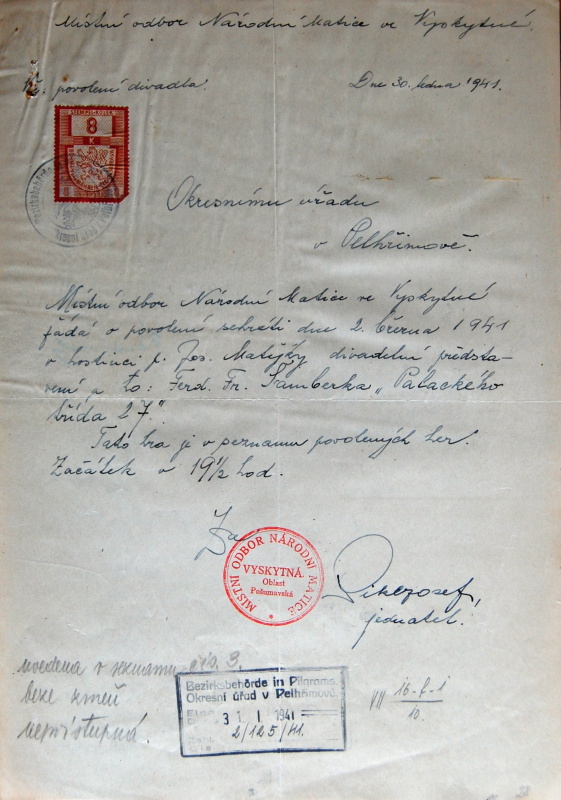 Místní odbor Národní Matice ve Vyskytné.
povolení divadla.
Dne 30. ledna 1941.
8
K
Okresnímu úřadu
v Pelhřimově.
Místní odbor Národní Matice ve Vyskytné
žádá o povolení sehráti dne 2. března 1941
v hostinci p. Jos. Matějky divadelní předsta-
vení a to: Ferd. Fr. Šamberka „Palackého
třída 27".
Tato hra je v seznamu povolených her.
Začátek v 19½ hod.
Za
MÍSTNÍ ODBOR NÁRODNÍ MATICE
VYSKYTNÁ.
Oblast
Pošumavská
jednatel.
uvedena v seznamu čís. 3.
beze změn
nepřístupná.
Bezirksbehörde in Pilgrams
Okresní úřad v Pelhřimově
31. I 1941
2/125/41.
VII 16-f-1
10.